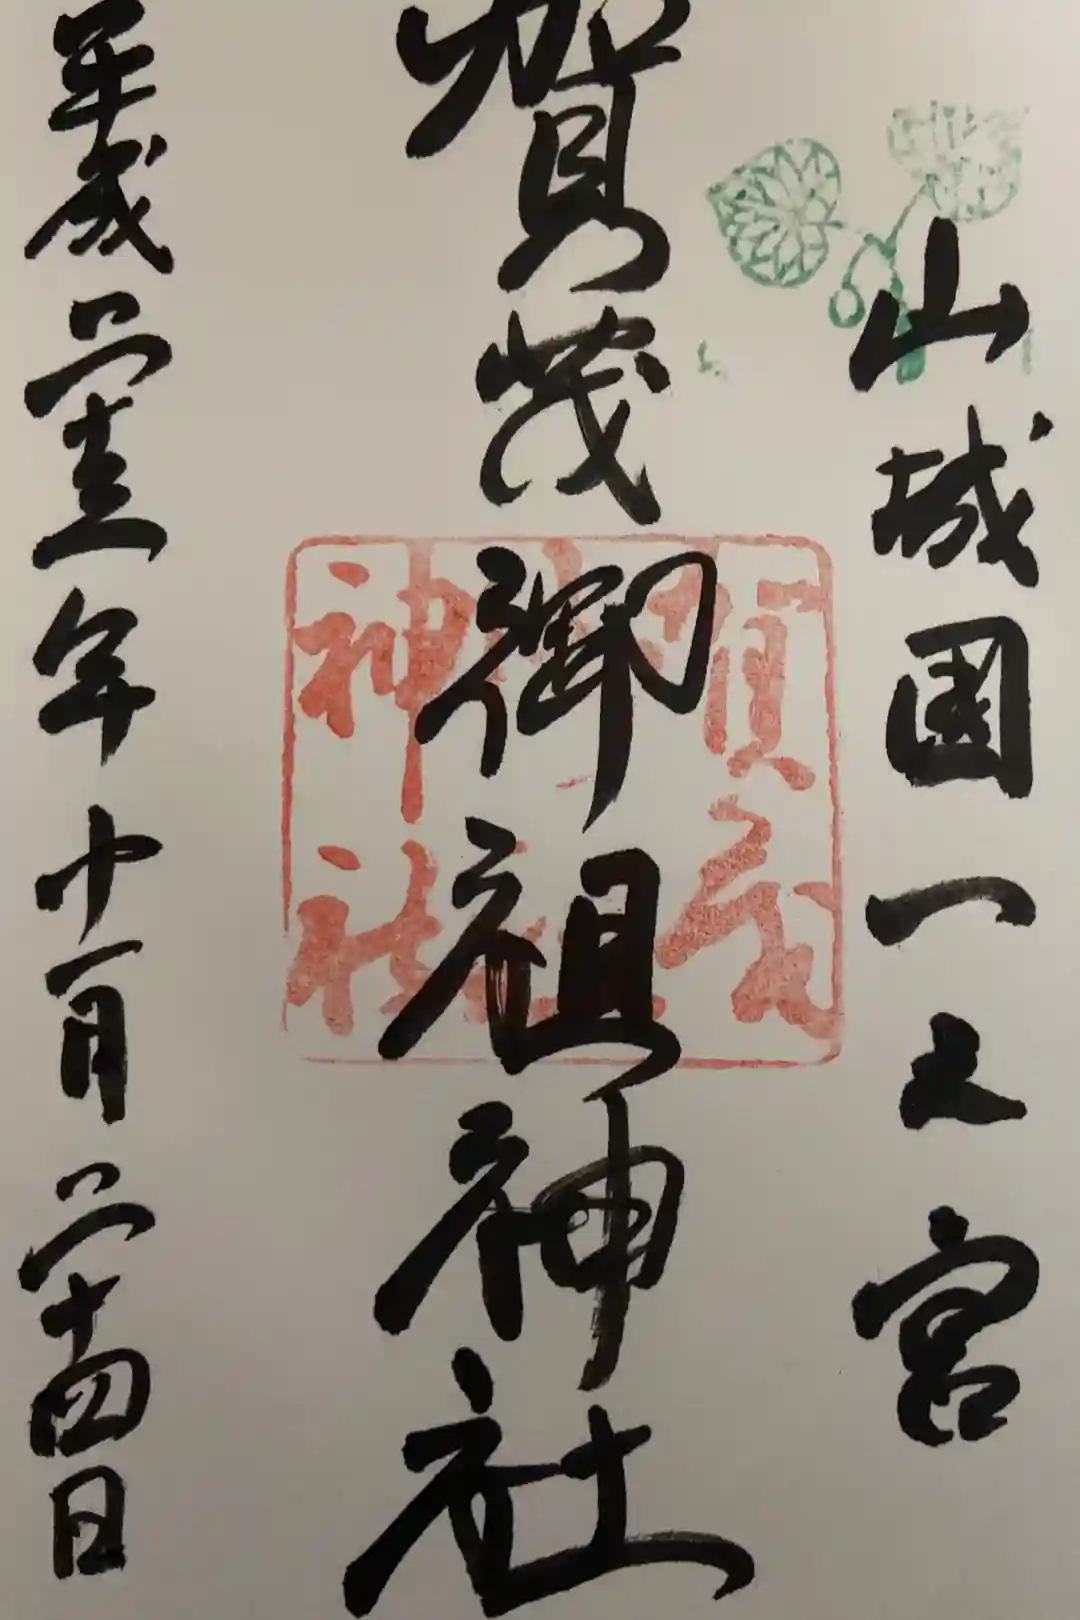 山城國一之宮
賀茂御祖神社
平成二十五年十一月二十四日
賀茂
神社